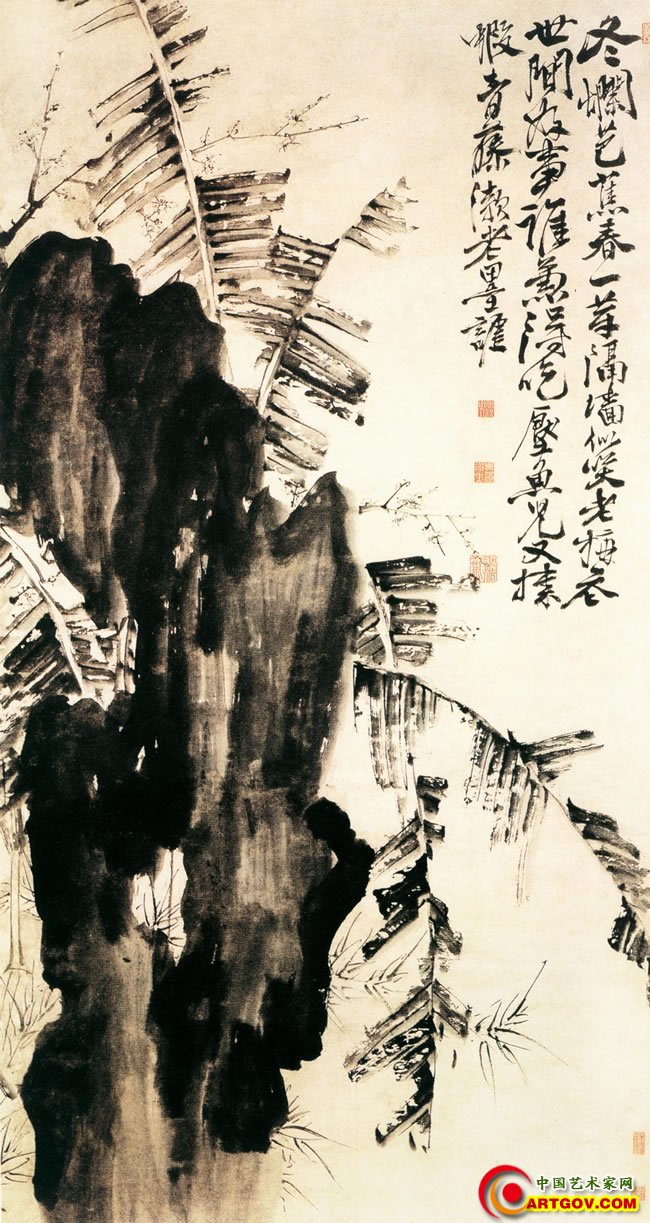 冬爛芭蕉春一芽隔墻似笑老梅花
世間好事誰兼得吃厭魚兒又揀
蝦青藤漱老墨謔
中国艺术家网
ARTGOV.COM